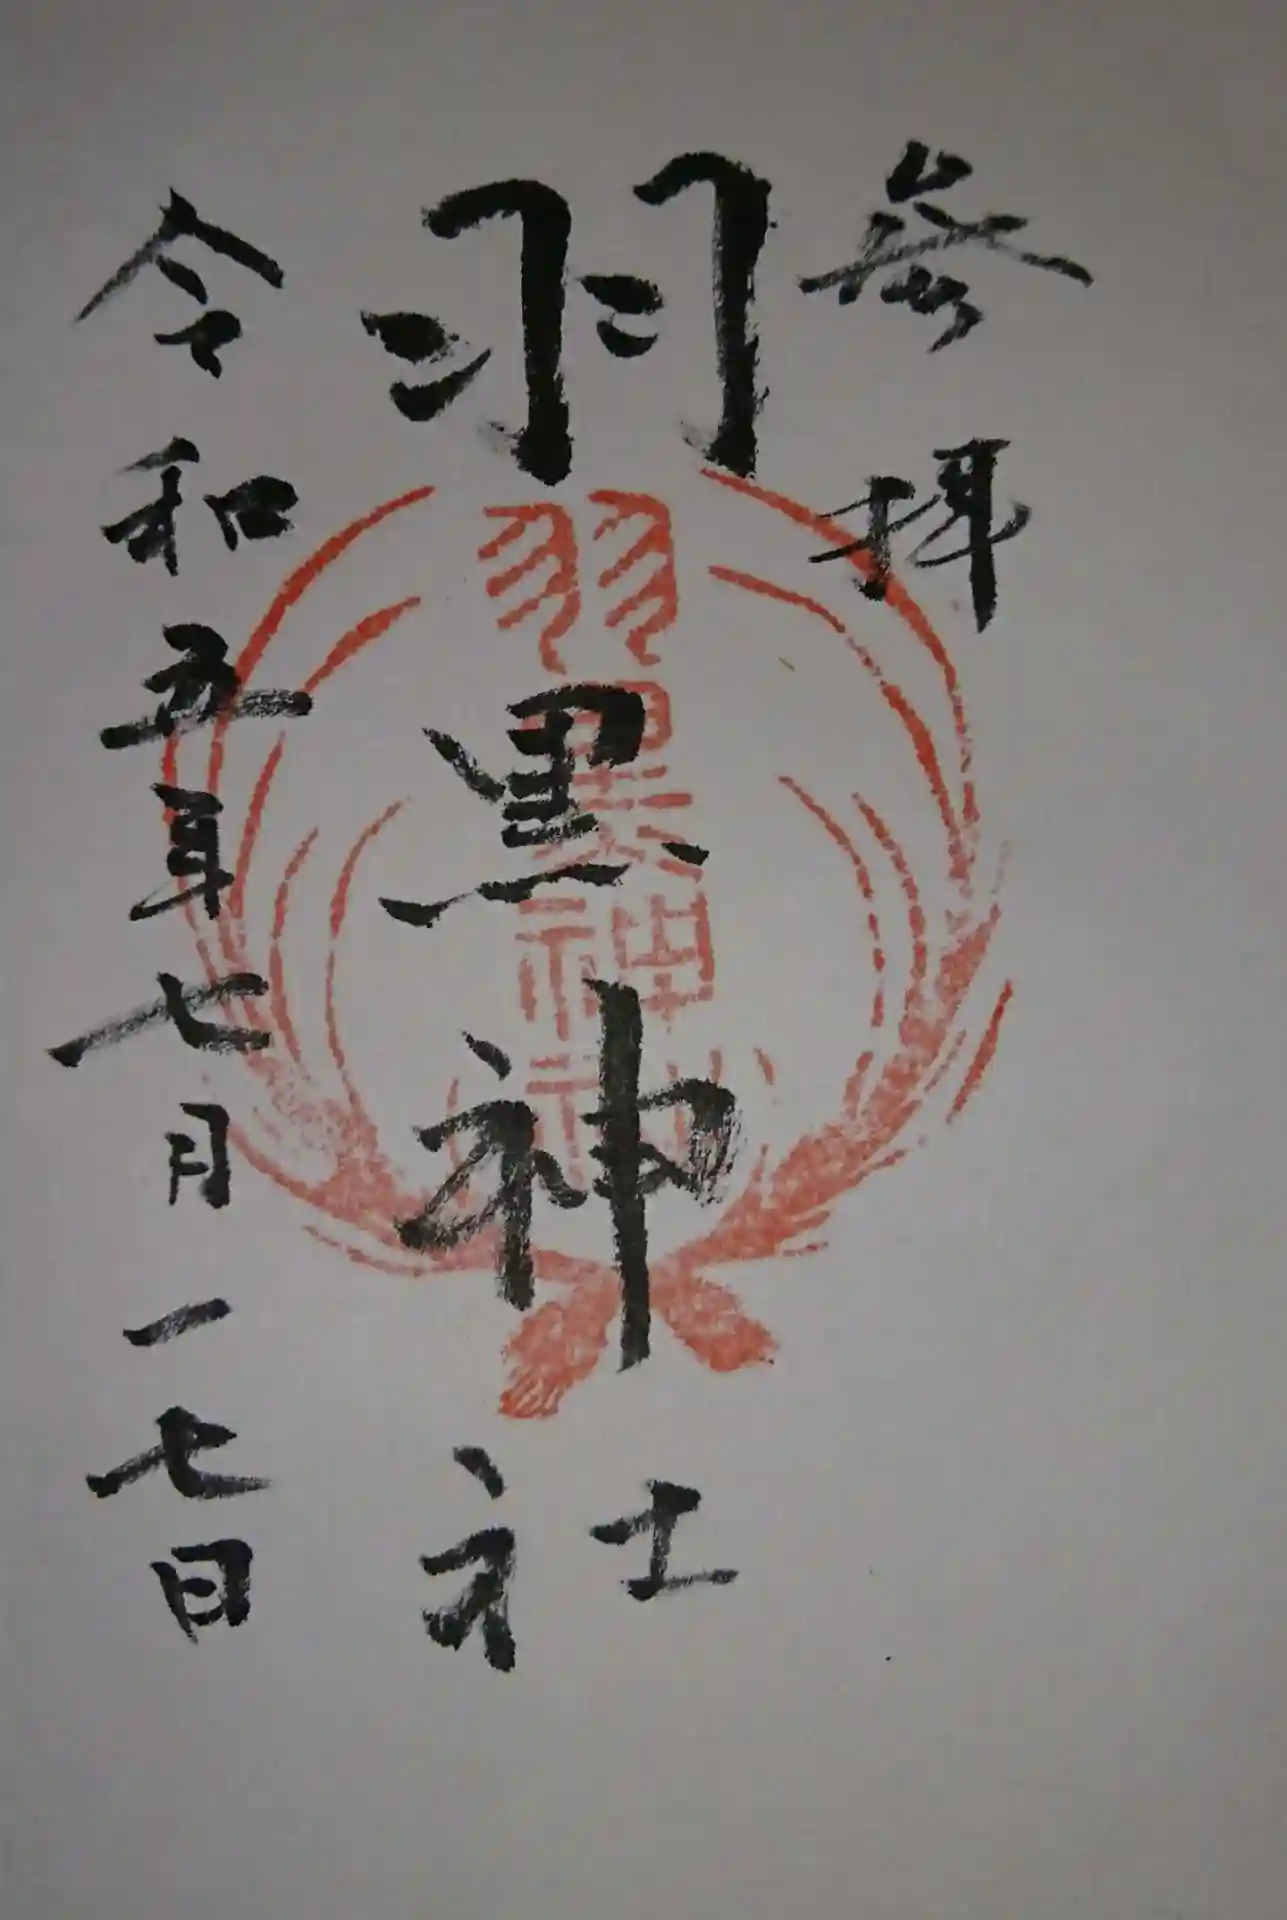 參拝
羽黒神社
羽黒神社
令和五年七月一七日